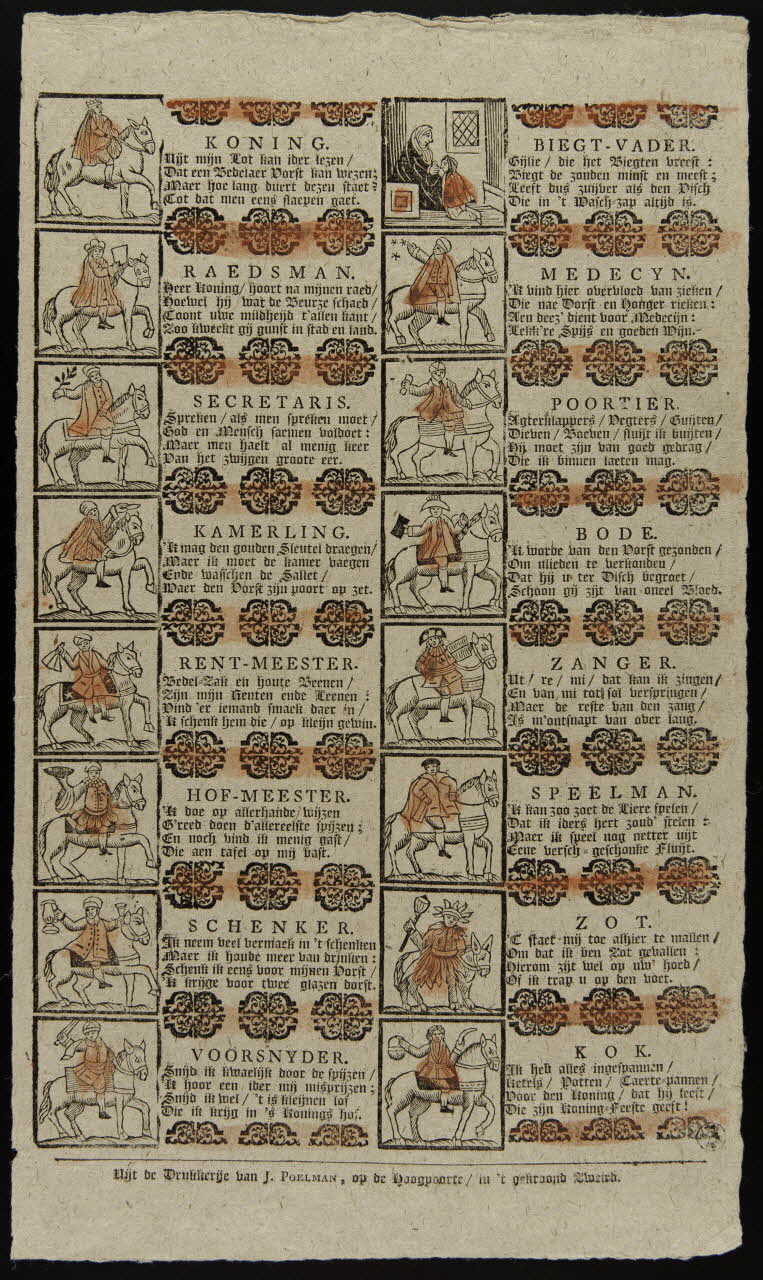 KONING.
Uyt mijn Lot kan ider lezen /
Dat een Bedelaer Vorst kan wezen;
Maer hoe lang duert dezen staet?
Tot dat men eens slaepen gaet.
RAEDSMAN.
Heer Koning / hoort na mijnen raed /
Hoewel hij wat de Beurze schaed /
Toont uwe mildheyd t'allen kant /
Zoo kweekt gij gunst in stad en land.
SECRETARIS.
Spreken / als men spreken moet /
God en Mensch saemen voldoet:
Maer men haelt al menig keer
Van het zwijgen groote eer.
KAMERLING.
'K mag den gouden Sleutel draegen /
Maer ik moet de kamer vaegen
Ende wasschen de Sallet /
Waer den Vorst zijn poort op zet.
RENT-MEESTER.
Bedel-Zak en houte Beenen /
Zijn mijn Renten ende Leenen:
Vind 'er iemand smaek daer in /
'K schenk hem die / op kleijn gewin.
HOF-MEESTER.
'K doe op allerhande wijzen
G'reed doen d'allereelste spijzen;
En noch vind ik menig gast /
Die aen tafel op mij bast.
SCHENKER.
Ik neem veel vermaek in 't schenken
Maer ik houde meer van drinken:
Schenk ik eens voor mijnen Vorst /
'K krijge voor twee glazen dorst.
VOORSNYDER.
Snijd ik kwaelijk door de spijzen /
'K hoor een ider mij misprijzen;
Snijd ik wel / 't is kleijnen lof
Die ik krijg in 's Konings hof.
BIEGT-VADER.
Gijlie / die het Biegten vreest:
Biegt de zonden minst en meest;
Leeft dus zuijver als den Visch
Die in 't Wasch-zap altijd is.
MEDECYN.
'K vind hier overvloed van zieken /
Die nae Dorst en Honger rieken:
Aen deez' dient voor Medecijn:
Lekk're Spijs en goeden Wijn.
POORTIER.
Agterklappers / Vegters / Guijten /
Dieven / Boeven / sluijt ik buijten /
Hij moet zijn van goed gedrag /
Die ik binnen laeten mag.
BODE.
'K worde van den Vorst gezonden /
Om ulieden te verkonden /
Dat hij u ter Disch begroet /
Schoon gij zijt van oneel Bloed.
ZANGER.
Ut / re / mi / dat kan ik zingen /
En van mi tot sol verspringen /
Maer de reste van den zang /
Is m'ontsnapt van over lang.
SPEELMAN.
'K kan zoo zoet de Liere spelen /
Dat ik iders hert zoud' stelen:
Maer ik speel nog netter uijt
Eene versch-geschonke Fluijt.
ZOT.
'T staet mij toe alhier te mallen /
Om dat ik ben Zot gevallen:
Hierom zijt wel op uw' hoed /
Of ik trap u op den voet.
KOK.
Ik heb alles ingespannen /
Ketels / Potten / Taerte-pannen /
Voor den Koning / dat hij leeft /
Die zijn Koning-Feeste geeft!
Uijt de Drukkerije van J. POELMAN, op de Hoogpoorte / in 't gekroond Zweird.